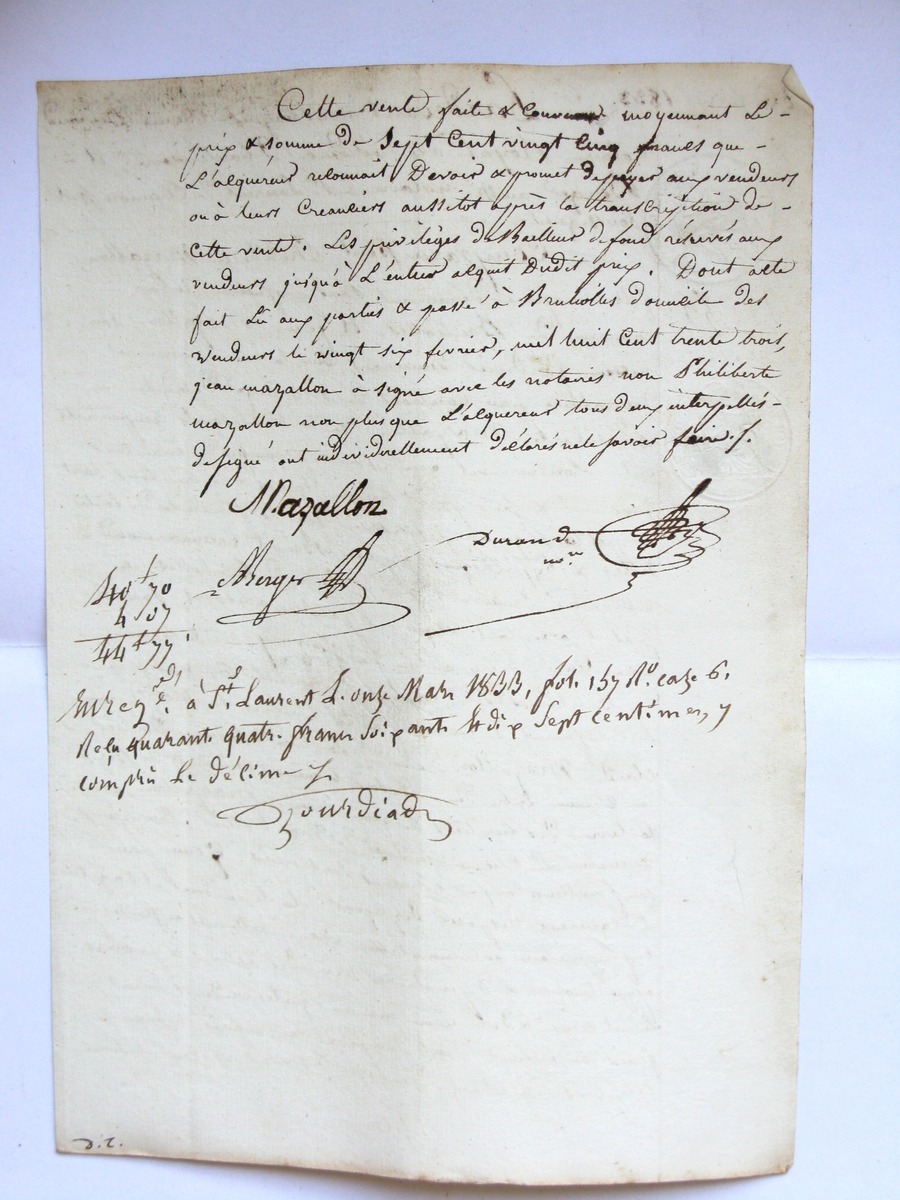 Cette vente faite & convenue moyennant Le -
prix & somme de Sept Cent vingt Cinq francs que -
L'acquereur reconnait Devoir & promet de payer aux vendeurs
ou à leurs Creanciers aussitot après la transcription de -
cette vente. Les privilèges de Bailleur de fond réservés aux
vendeurs jusqu'à L'entier acquit Dudit prix. Dont acte
fait Lû aux parties & passé à domicile des
vendeurs le vingt six fevrier, mil huit Cent trente trois,
jean mazallon à signé avec les notaires non Philiberte
mazallon non plus que L'acquereur tous deux interpellés -
de signé ont individuellement déclarés ne le savoir faire ./.
Mazallon
Durand
nore
Berger
40f 70
4 07
44f 77c
Enregré à St. Laurent L. onze Mars 1833, fol. 157 Ro. case 6.
Reçu quarante quatre francs Soixante Et dix Sept centimes, y
compris Le décime ./.
D.C.